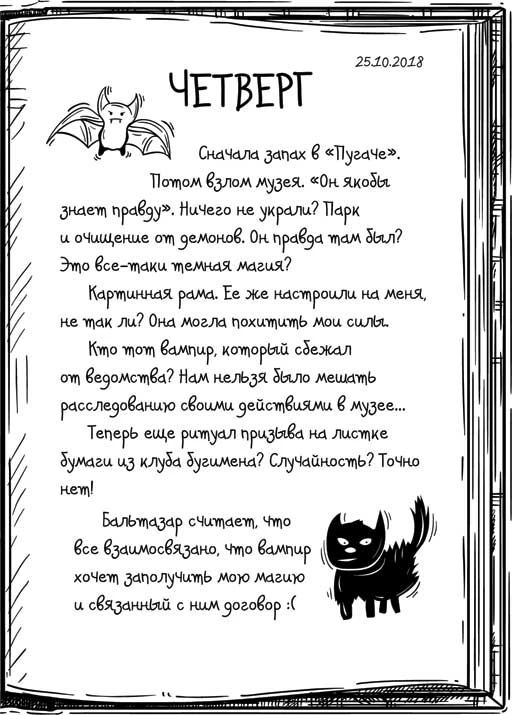 25.10.2018
ЧЕТВЕРГ
Сначала запах в «Пугаче».
Потом взлом музея. «Он якобы
знает правду». Ничего не украли? Парк
и очищение от демонов. Он правда там был?
Это все-таки темная магия?
Картинная рама. Ее же настроили на меня,
не так ли? Она могла похитить мои силы.
Кто тот вампир, который сбежал
от ведомства? Нам нельзя было мешать
расследованию своими действиями в музее...
Теперь еще ритуал призыва на листке
бумаги из клуба бугимена? Случайность? Точно
нет!
Бальтазар считает, что
все взаимосвязано, что вампир
хочет заполучить мою магию
и связанный с ним договор :(